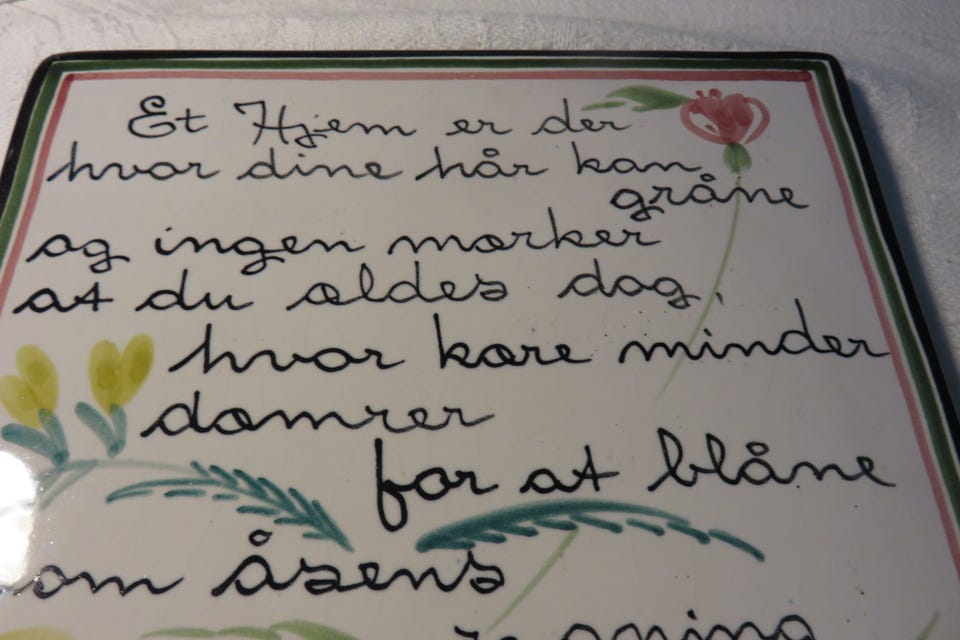 Et Hjem er der
hvor dine hår kan
gråne
og ingen mærker
at du ældes dag,
hvor kære minder
dæmrer
for at blåne
som åsens